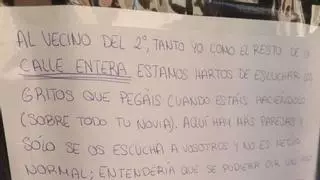 AL VECINO DEL 2º, TANTO YO COMO EL RESTO DE
CALLE ENTERA ESTAMOS HARTOS DE ESCUCHAR
GRITOS QUE PEGÁIS CUANDO ESTÁIS HACIÉNDOLO
(SOBRE TODO TU NOVIA). AQUÍ HAY MÁS PAREJAS Y
SÓLO SE OS ESCUCHA A VOSOTROS Y NO ES
NORMAL; ENTENDERÍA QUE SE PUDIERA OIR